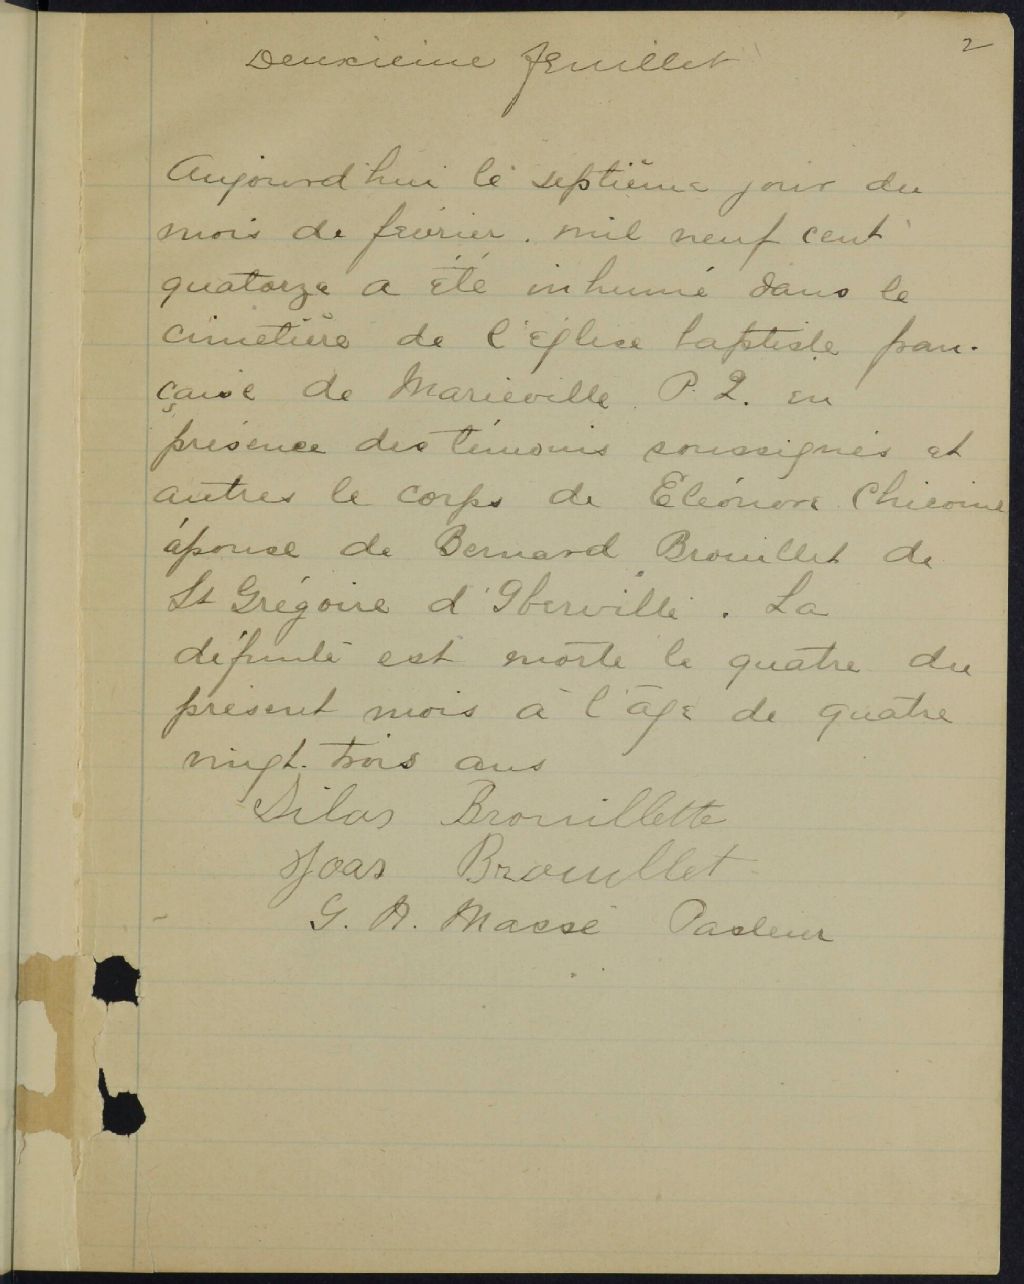 2
Deuxieme feuillet
Aujourd'hui le septième jour du
mois de février. mil neuf cent
quatorze a été inhumé dans le
cimetière de l'église baptiste fran-
çaise de Marieville P. Q. en
présence des témoins soussignés et
autres le corps de Eléonore Chicoine
épouse de Bernard Brouillet de
St Grégoire d'Iberville. La
défunte est morte le quatre du
présent mois à l'âge de quatre
vingt. trois ans
Silas Brouillette
Joas Brouillet
G. A. Massé Pasteur